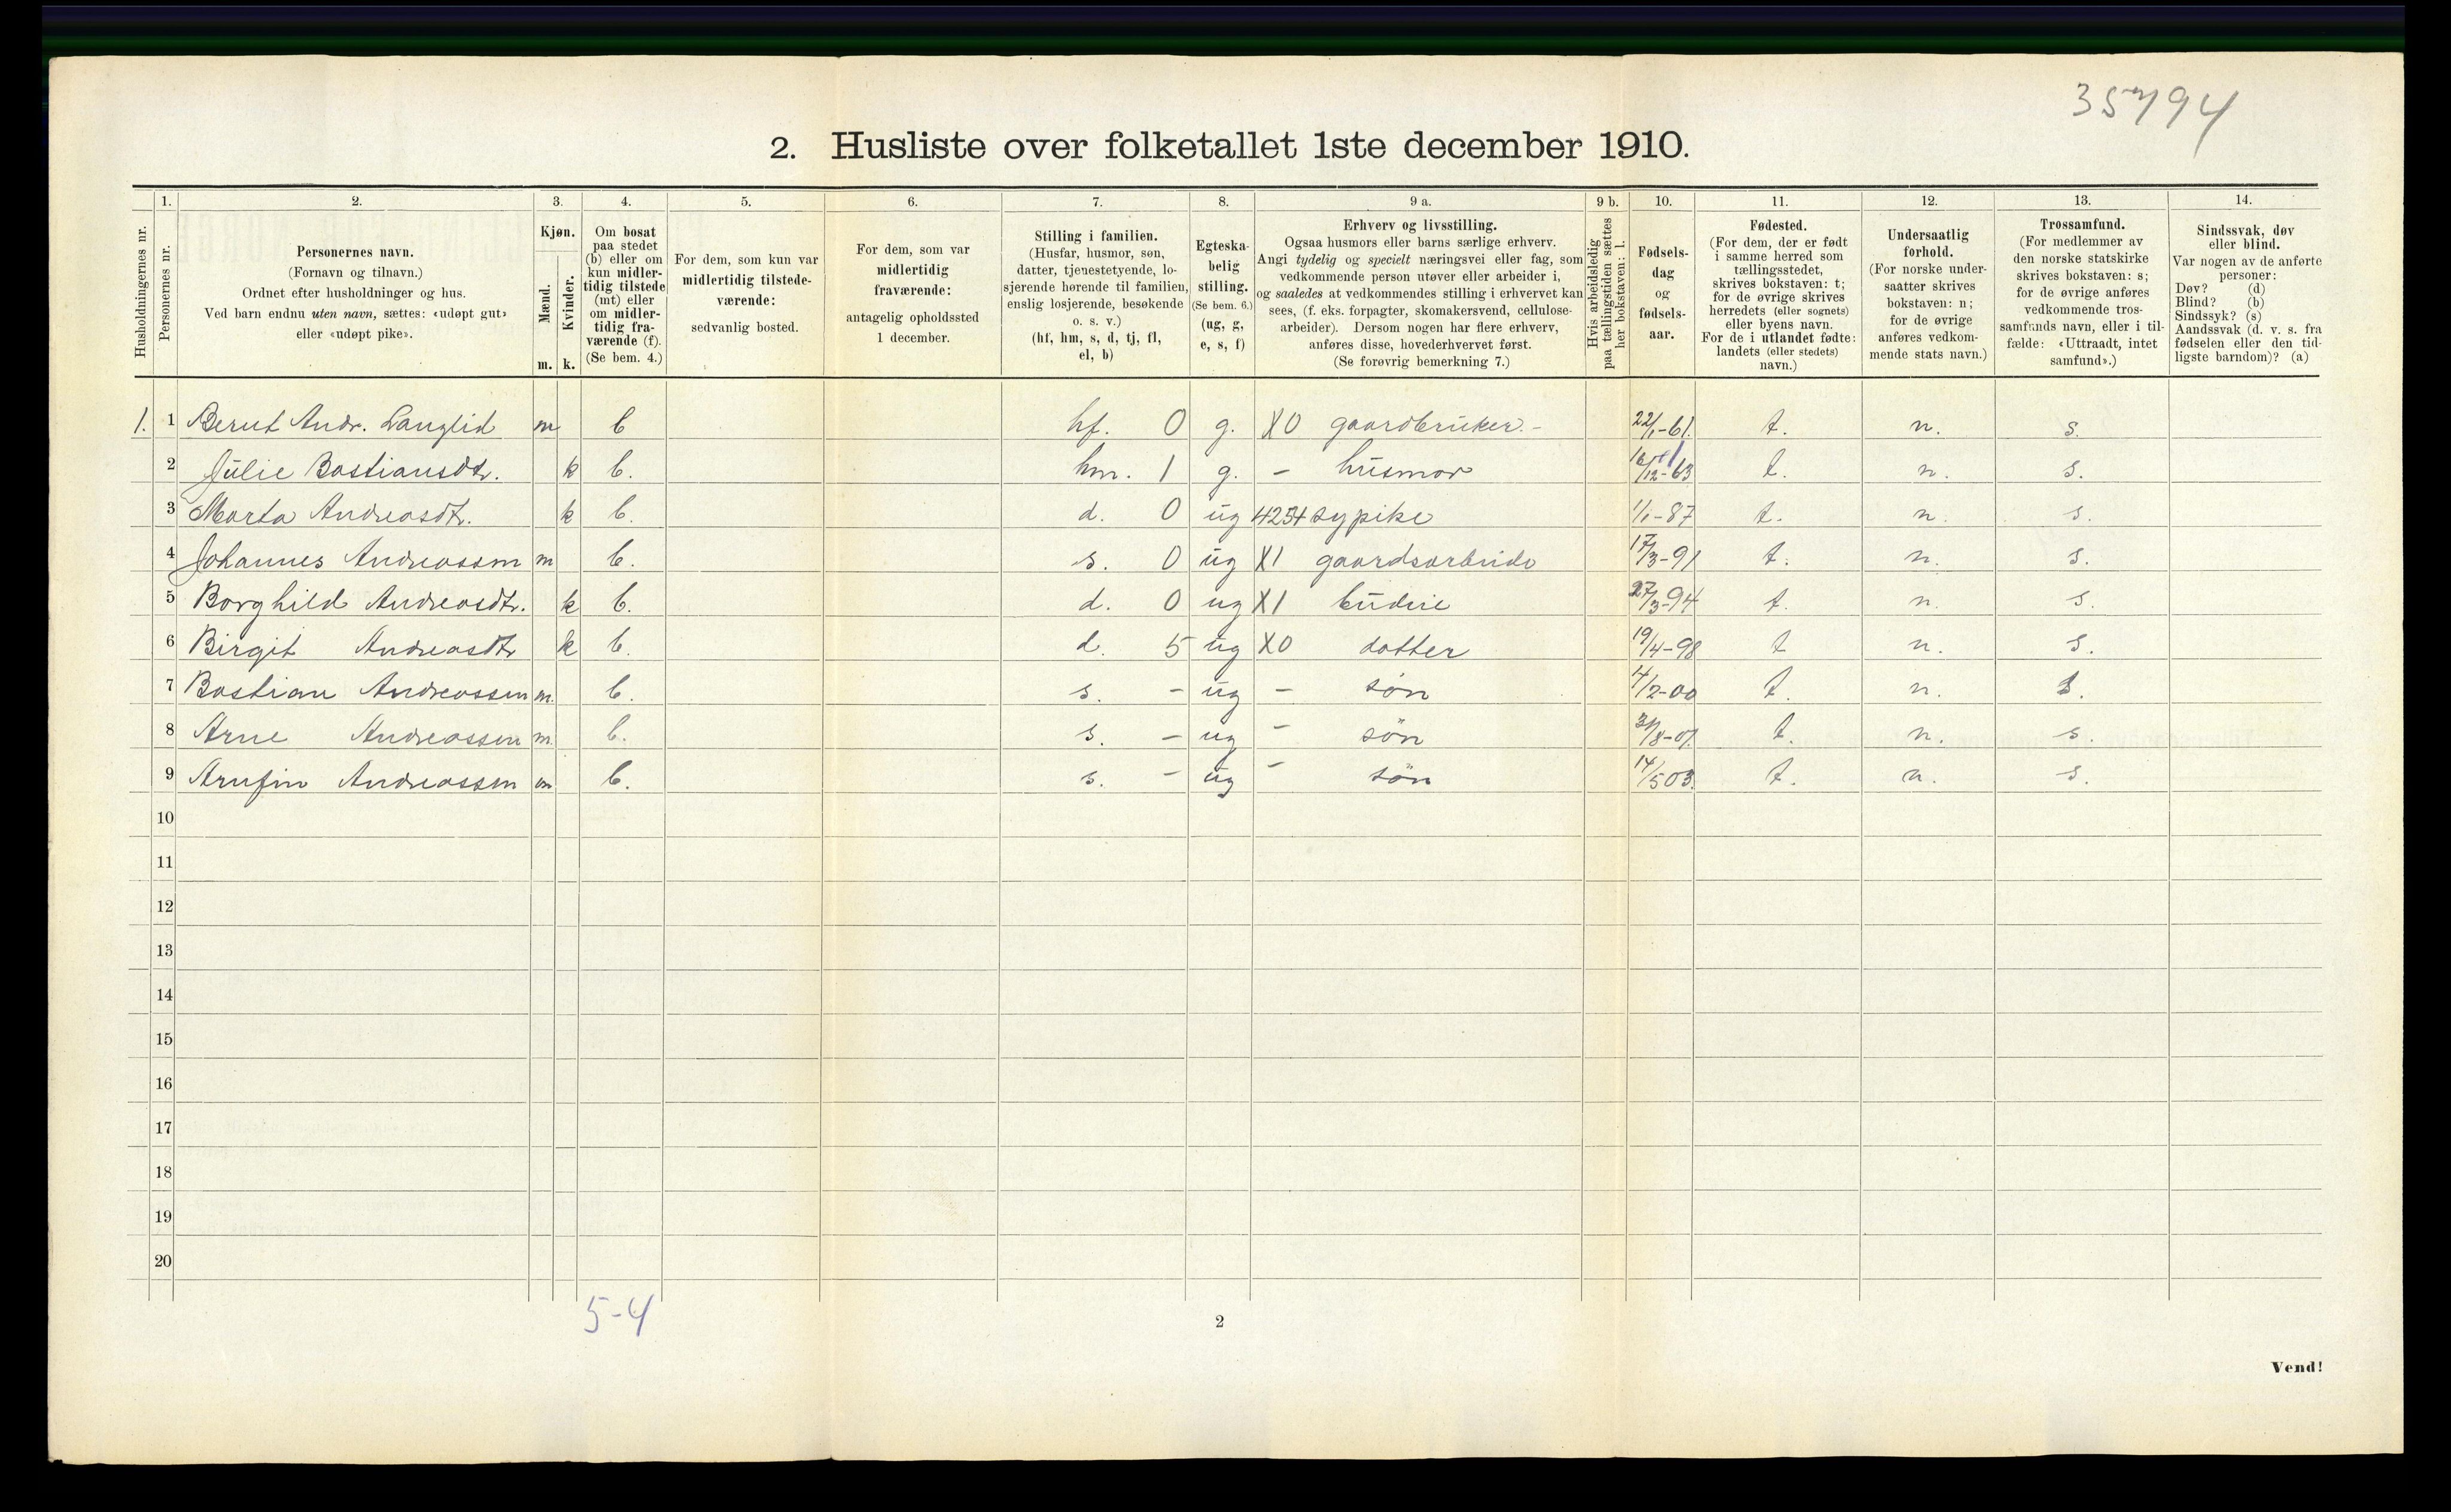 35794
2. Husliste over folketallet 1ste december 1910.
1. 2. 3. 4. 5. 6. 7. 8. 9 a. 9 b. 10. 11. 12. 13. 14.
Husholdningernes nr.
Personernes nr.
Personernes navn.
(Fornavn og tilnavn.)
Ordnet efter husholdninger og hus.
Ved barn endnu uten navn, sættes: «udøpt gut»
eller «udøpt pike».
Kjøn.
Mænd.
Kvinder.
m. k.
Om bosat
paa stedet
(b) eller om
kun midler-
tidig tilstede
(mt) eller
om midler-
tidig fra-
værende (f).
(Se bem. 4.)
For dem, som kun var
midlertidig tilstede-
værende:
sedvanlig bosted.
For dem, som var
midlertidig
fraværende:
antagelig opholdssted
1 december.
Stilling i familien.
(Husfar, husmor, søn,
datter, tjenestetyende, lo-
sjerende hørende til familien,
enslig losjerende, besøkende
o. s. v.)
(hf, hm, s, d, tj, fl,
el, b)
Egteska-
belig
stilling.
(Se bem. 6.)
(ug, g,
e, s, f)
Erhverv og livsstilling.
Ogsaa husmors eller barns særlige erhverv.
Angi tydelig og specielt næringsvei eller fag, som
vedkommende person utøver eller arbeider i,
og saaledes at vedkommendes stilling i erhvervet kan
sees, (f. eks. forpagter, skomakersvend, cellulose-
arbeider). Dersom nogen har flere erhverv,
anføres disse, hovederhvervet først.
(Se forøvrig bemerkning 7.)
Hvis arbeidsledig
paa tællingstiden sættes
her bokstaven: l.
Fødsels-
dag
og
fødsels-
aar.
Fødested.
(For dem, der er født
i samme herred som
tællingsstedet,
skrives bokstaven: t;
for de øvrige skrives
herredets (eller sognets)
eller byens navn.
For de i utlandet fødte:
landets (eller stedets)
navn.)
Undersaatlig
forhold.
(For norske under-
saatter skrives
bokstaven: n;
for de øvrige
anføres vedkom-
mende stats navn.)
Trossamfund.
(For medlemmer av
den norske statskirke
skrives bokstaven: s;
for de øvrige anføres
vedkommende tros-
samfunds navn, eller i til-
fælde: «Uttraadt, intet
samfund».)
Sindssvak, døv
eller blind.
Var nogen av de anførte
personer:
Døv? (d)
Blind? (b)
Sindssyk? (s)
Aandssvak (d. v. s. fra
fødselen eller den tid-
ligste barndom)? (a)
1. 1 Bernt Andr. Langlid m b hf. 0 g. X0 gaardbruker. - 22/1-61. t. n. s.
2 Julie Bastiansdtr. k b. hm. 1 g. - husmor 16/12-63 t. n. s.
3 Marta Andreasdtr. k b. d. 0 ug 4254 sypike 1/1-87 t. n. s.
4 Johannes Andreassen m b. s. 0 ug X1 gaardsarbeide 17/3-91 t. n. s.
5 Borghild Andreasdtr. k b. d. 0 ug X1 budeie 27/3-94 t. n. s.
6 Birgit Andreasdtr k b. d. 5 ug X0 datter 19/4-98 t n. s.
7 Bastian Andreassen m. b. s. - ug - søn 4/2-00 t. n. s.
8 Arne Andreassen m. b. s. - ug - søn 31/8-01. t. n. s.
9 Arnfin Andreassen m b. s. - ug - søn 14/5 03. t. n. s.
10
11
12
13
14
15
16
17
18
19
20
5-4
2
Vend!